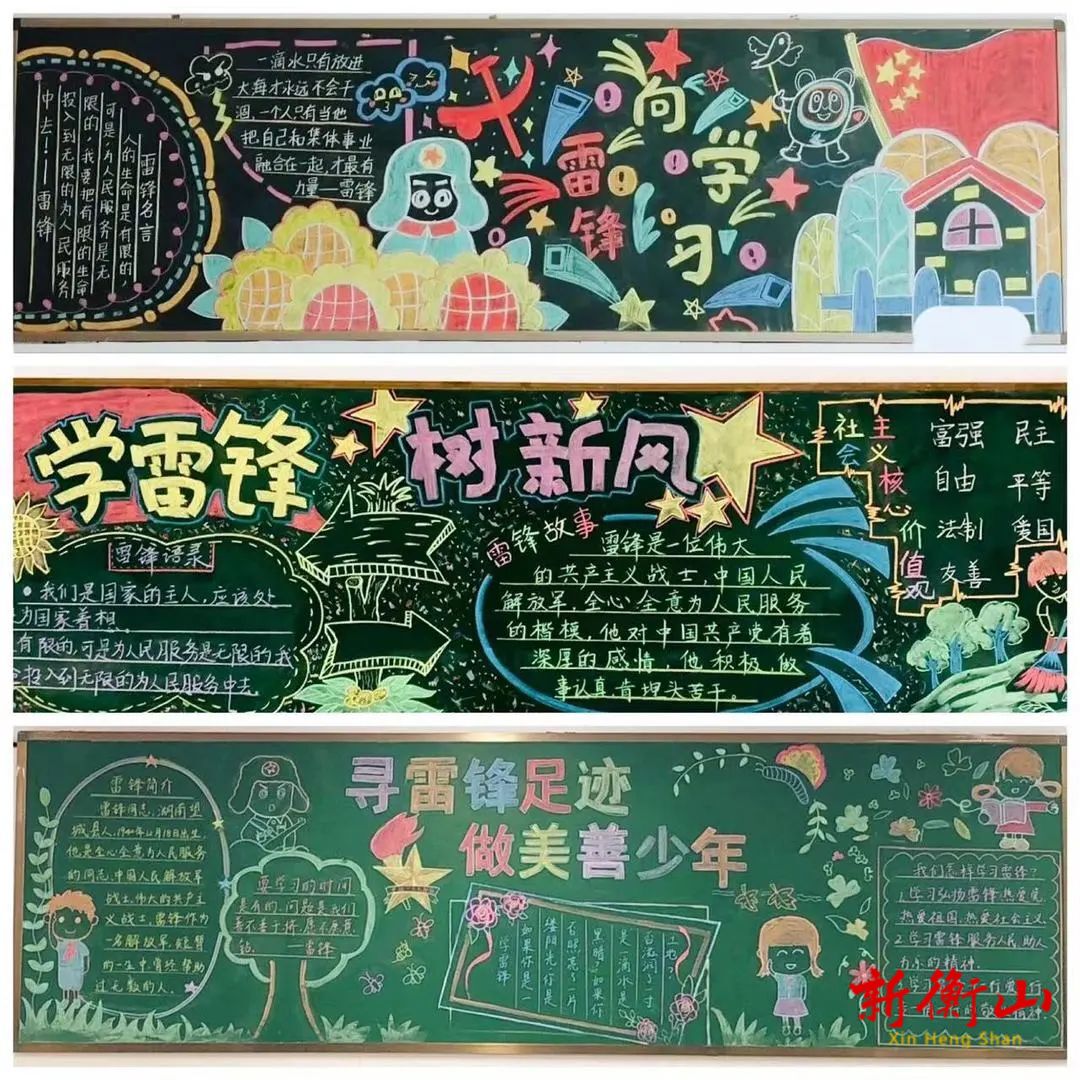 雷锋名言
人的生命是有限的,
可是,为人民服务是无
限的,我要把有限的生命
投入到无限的为人民服务
中去!——雷锋
一滴水只有放进
大海才永远不会干
涸,一个人只有当他
把自己和集体事业
融合在一起,才最有
力量—雷锋
向
雷锋
学习
学雷锋 树新风
雷锋语录
我们是国家的主人,应该处
为国家着想
有限的,可是为人民服务是无限的我
投入到无限的为人民服务中去
雷锋故事
雷锋是一位伟大
的共产主义战士,中国人民
解放军,全心全意为人民服务
的楷模,他对中国共产党有着
深厚的感情,他积极,做
事认真肯埋头苦干。
社会主义核心价值观
富强 民主
自由 平等
法制 爱国
友善
寻雷锋足迹
做美善少年
雷锋简介
雷锋同志,湖南望
城县人,1940年12月18日出生
他是全心全意为人民服务
的同志,中国人民解放军
战士,伟大的共产主
义战士,雷锋作为
一名解放军,短暂
的一生中,曾经帮助
过无数的人。
要学习的时间
是有的,问题是我们
善不善于挤,愿不愿意
钻。——雷锋
学雷锋
如果你是一
缕阳光,你是
否照亮了一片
黑暗?如果你
是一滴水,是
否滋润了一寸
土地?
我们怎样学习雷锋?
1.学习弘扬雷锋,热爱党
热爱祖国,热爱社会主义
2.学习雷锋服务人民,助人
为乐的精神.
新衡山
Xin Heng Shan